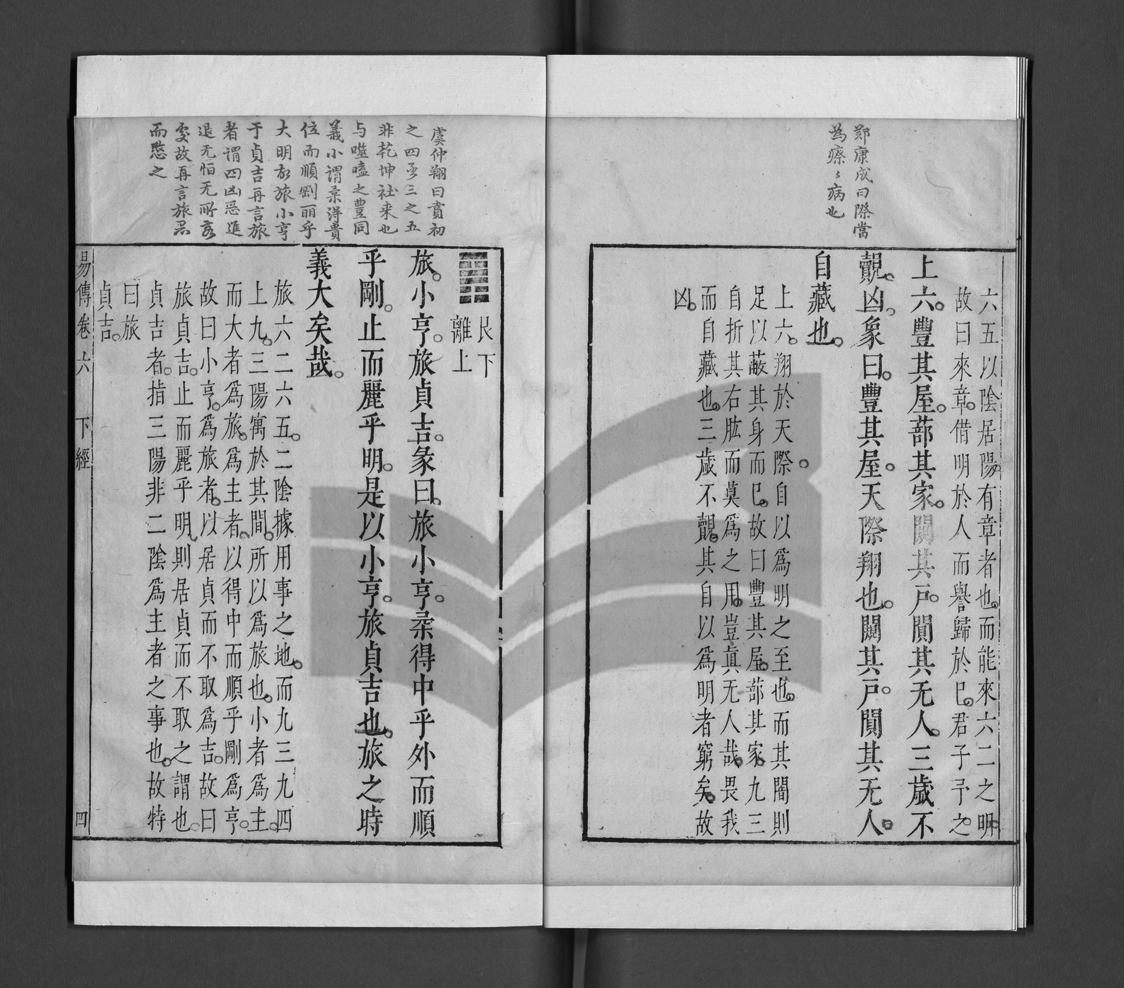 鄭康成曰際當
為瘵〻病也
六五以陰居陽有章者也而能來六二之明
故曰來章借明於人而譽歸於已君子予之
上六豐其屋蔀其家闚其戸闃其无人三歲不
覿凶象曰豐其屋天際翔也闚其戸闃其无人
自藏也
上六翔於天際自以爲明之至也而其闇則
足以蔽其身而已故曰豐其屋蔀其家九三
自折其右肱而莫爲之用豈眞无人哉畏我
而自藏也三歲不覿其自以爲明者窮矣故
凶
虞仲翔曰賁初
之四否三之五
非乾坤往來也
与噬嗑之豐同
義小謂柔得貴
位而順剛丽乎
大明故旅小亨
于貞吉再言旅
者謂四凶惡進
退无恒无所容
處故再言旅惡
而愍之
艮下
離上
旅小亨旅貞吉彖曰旅小亨柔得中乎外而順
乎剛止而麗乎明是以小亨旅貞吉也旅之時
義大矣哉
旅六二六五二陰據用事之地而九三九四
上九三陽寓於其間所以爲旅也小者爲主
而大者爲旅爲主者以得中而順乎剛爲亨
故曰小亨爲旅者以居貞而不取爲吉故曰
旅貞吉止而麗乎明則居貞而不取之謂也
貞吉者指三陽非二陰爲主者之事也故特
曰旅
貞吉
易傳卷六 下經 四